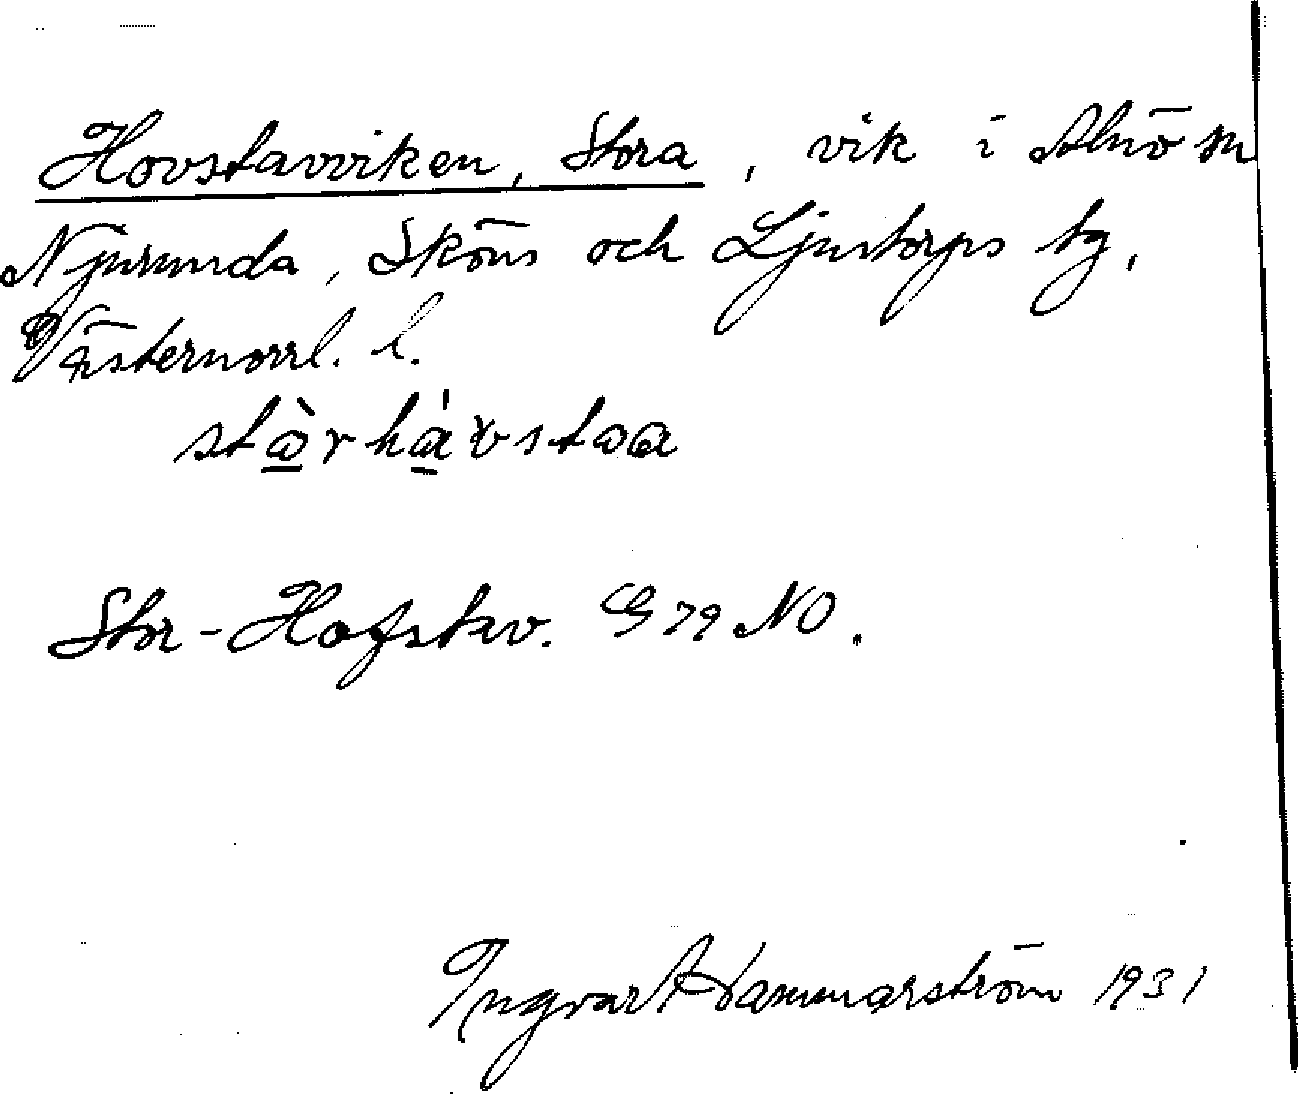 Hovstavviken, Stora, vik i Alnö sn
Njurunda, Sköns och Ljustorps tg,
Västernorrl. l.
Stor-Hofstav. G 79 NO.
Ingvar Hammarström 1931